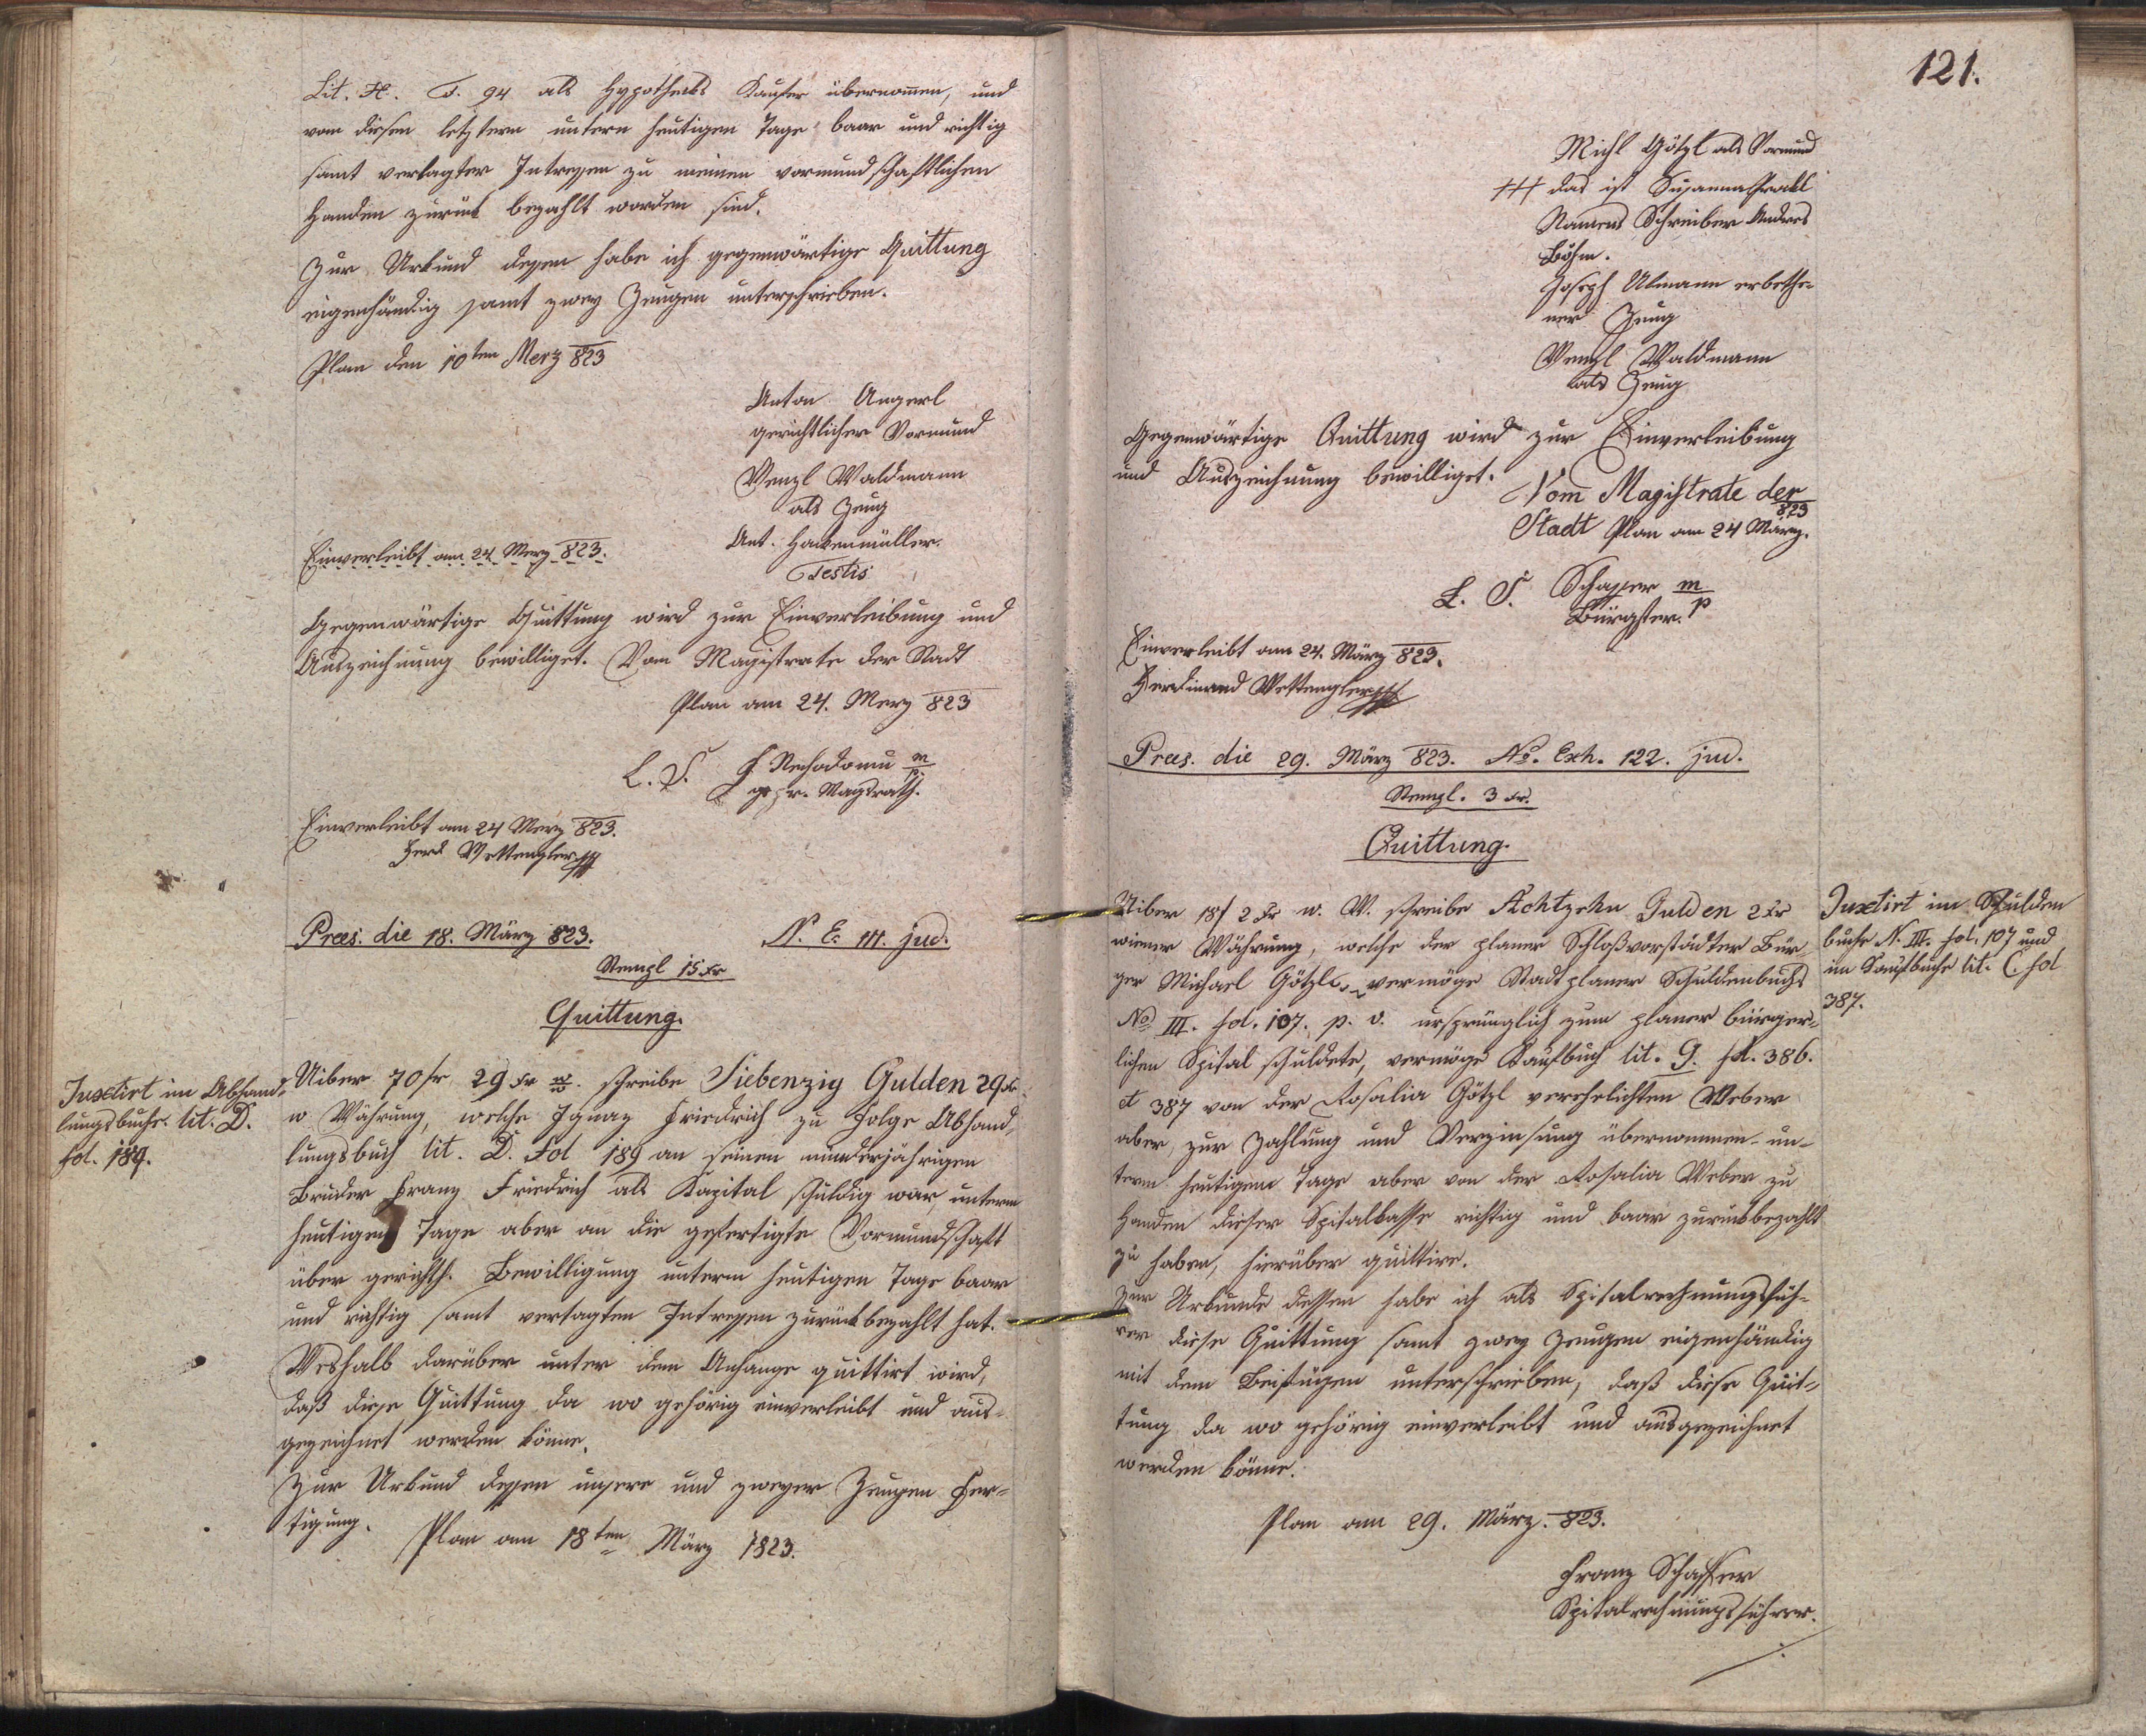 Lit. H. F. 94 als Hypotheks Kaufer übernommen, und
von diesen letztern untern heutigen Tage baar und richtig
samt vertagter Intressen zu meinen vormundschaftlichen
Handen zurük bezahlt worden sind.
Zur Urkund dessen habe ich gegenwärtige Quittung
eigenhändig samt zwey Zeugen unterschrieben.
Plan den 10ten Merz 823
Anton Angerl
gerichtlicher Vormund
Wenzl Waldmann
als Zeug
Ant. Hackenmüller.
Testis
Einverleibt am 24 Merz 823.
Gegenwärtige Quittung wird zur Einverleibung und
Auszeichnung bewilliget. Vom Magistrate der Stadt
Plan am 24. Merz 823
L. S.
gepr. Magrath.
Einverleibt am 24 Merz 823.
Ferd Wettengler
Prees. die 18. März 823. N. E. 111. jud.
Stempl 15 Xr
Quittung.
Juxtirt im Abhand-
lungsbuche lit. D.
fol. 189.
Uiber 70 fr 29 Xr w. schreibe Siebenzig Gulden 29 Xr
w Währung, welche Ignaz Friedrich zu Folge Abhand-
lungsbuch lit. D. Fol 189 an seinen minderjährigen
Bruder Franz Friedrich als Kapital schuldig war, unterm
heutigen Tage aber an die gefertigte Vormundschaft
über gerichtl. Bewilligung unterm heutigen Tage baar
und richtig samt vertagten Intressen zurükbezahlt hat.
Weshalb darüber unter dem Anhange quittirt wird,
daß diese Quittung da wo gehörig einverleibt und aus-
gezeichnet werden könne.
Zur Urkund dessen unsere und zweyer Zeugen Fer-
tigung.
Plan am 18ten März 1823.
121.
Michl Götzl als Vormund
+++ das ist Susanna
Namens Schreiber Andres
Böhm.
Joseph Ulmann erbethe-
ner Zeug
Wenzl Waldmann
als Zeug
Gegenwärtige Quittung wird zur Einverleibung
und Auszeichnung bewilliget.
Vom Magistrate der
Stadt Plan am 24 März. 823
L. S. Schaffer m/p
Bürgster.
Einverleibt am 24. März 823.
Ferdinand Wettengler
Prees. die 29. März 823. No. Exh. 122. jud.
Stempl. 3 Xr.
Quittung.
Juxtirt im Schulden
buche N. III. fol. 107 und
im Kaufbuche lit. C. fol
387.
Uiber 18f 2 Xr w. W. schreibe Achtzehn Gulden 2 Xr
wiener Währung, welche der planer Schloßvorstädter Bür-
ger Michael Götzl vermöge Stadt planer Schuldenbuchs
No III. fol. 107. p. v. ursprünglich zum planer bürger-
lichen Spital schuldete, vermöge Kaufbuch lit. G. fol. 386.
et 387 von der Rosalia Götzl verehelichten Weber
aber, zur Zahlung und Verzinsung übernommen un-
term heutigem Tage aber von der Rosalia Weber zu
Handen dieser Spitalkasse richtig und baar zurükbezahlt
zu haben, hierüber quittire.
Zur Urkunde dessen habe ich als Spitalrechnungsfüh-
rer diese Quittung samt zwey Zeugen eigenhändig
mit dem Beifügen unterschrieben, daß diese Quit-
tung da wo gehörig einverleibt und ausgezeichnet
werden könne.
Plan am 29. März. 823.
Franz Schaffer
Spitalrechnungsführer.